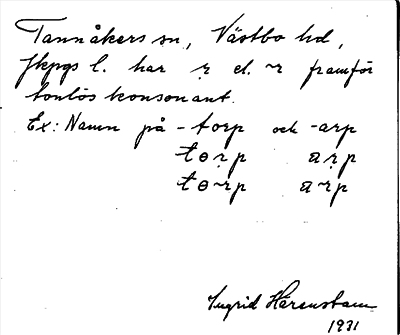 Tannåkers sn, Västbo hd,
Jkpgs l. har r̥ el. ~r framför
tonlös konsonant.
Ex: Namn på -torp och -arp
tɵr̥p ar̥p
tɵ~rp a~rp
Ingrid Härenstam
1931